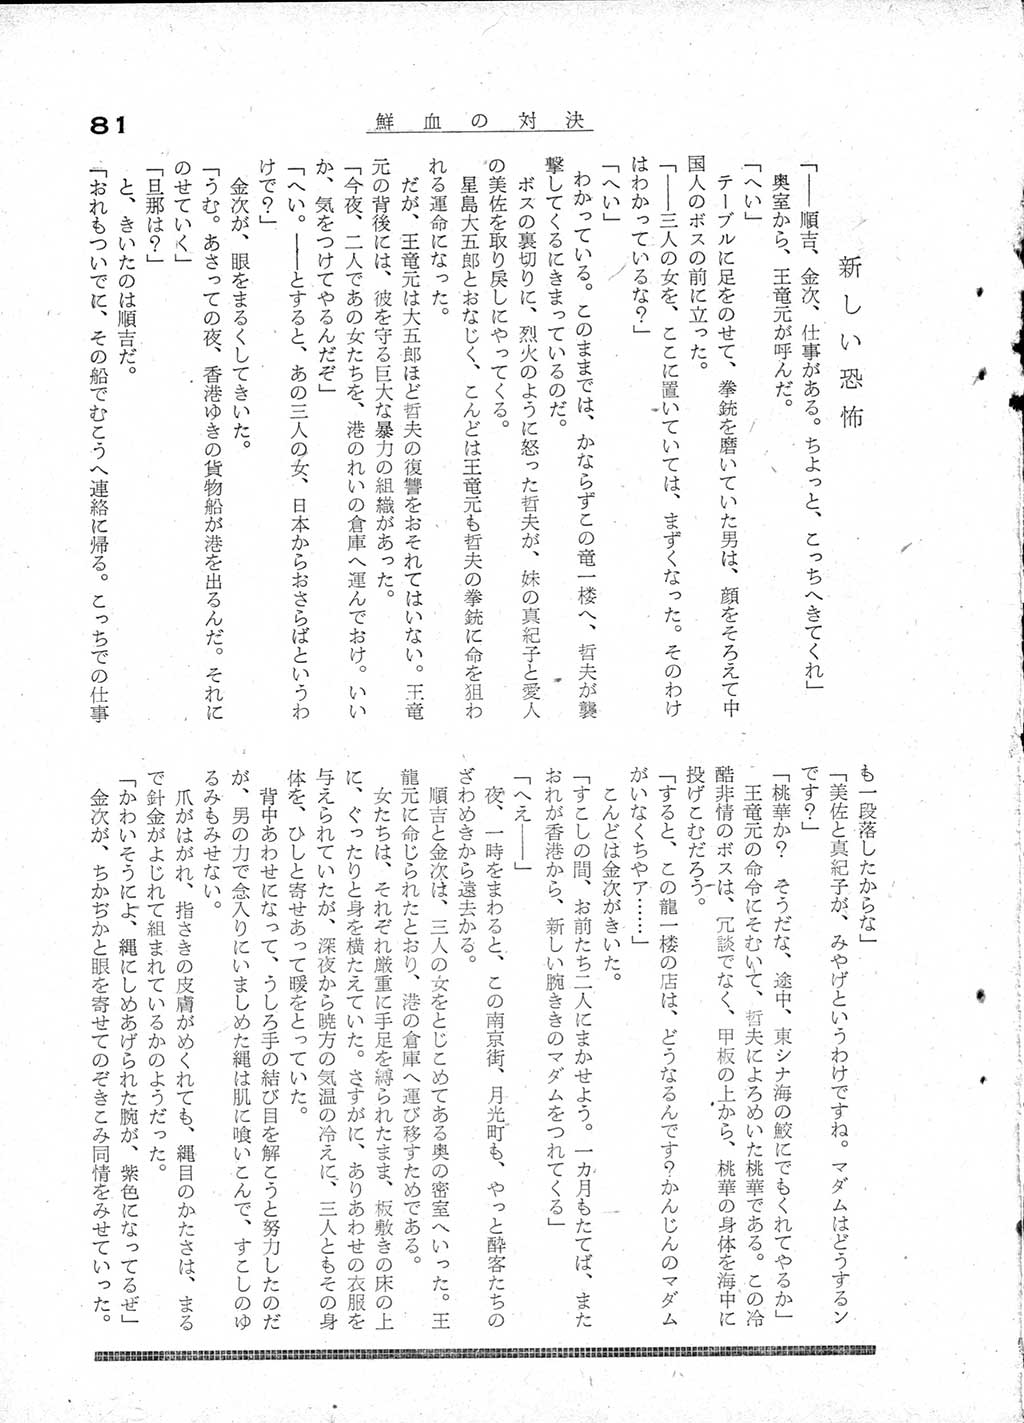 81
鮮血の対決
新しい恐怖
「――順吉、金次、仕事がある。ちよっと、こっちへきてくれ」
奥室から、王竜元が呼んだ。
「へい」
テーブルに足をのせて、拳銃を磨いていた男は、顔をそろえて中
国人のボスの前に立った。
「――三人の女を、ここに置いていては、まずくなった。そのわけ
はわかっているな？」
「へい」
わかっている。このままでは、かならずこの竜一楼へ、哲夫が襲
撃してくるにきまっているのだ。
ボスの裏切りに、烈火のように怒った哲夫が、妹の真紀子と愛人
の美佐を取り戻しにやってくる。
星島大五郎とおなじく、こんどは王竜元も哲夫の拳銃に命を狙わ
れる運命になった。
だが、王竜元は大五郎ほど哲夫の復讐をおそれてはいない。王竜
元の背後には、彼を守る巨大な暴力の組織があった。
「今夜、二人であの女たちを、港のれいの倉庫へ運んでおけ。いい
か、気をつけてやるんだぞ」
「へい。――とすると、あの三人の女、日本からおさらばというわ
けで？」
金次が、眼をまるくしてきいた。
「うむ。あさっての夜、香港ゆきの貨物船が港を出るんだ。それに
のせていく」
「旦那は？」
と、きいたのは順吉だ。
「おれもついでに、その船でむこうへ連絡に帰る。こっちでの仕事
も一段落したからな」
「美佐と真紀子が、みやげというわけですね。マダムはどうするン
です？」
「桃華か？　そうだな、途中、東シナ海の鮫にでもくれてやるか」
王竜元の命令にそむいて、哲夫によろめいた桃華である。この冷
酷非情のボスは、冗談でなく、甲板の上から、桃華の身体を海中に
投げこむだろう。
「すると、この龍一楼の店は、どうなるんです？かんじんのマダム
がいなくちやア……」
こんどは金次がきいた。
「すこしの間、お前たち二人にまかせよう。一カ月もたてば、また
おれが香港から、新しい腕ききのマダムをつれてくる」
「へえ――」
夜、一時をまわると、この南京街、月光町も、やっと酔客たちの
ざわめきから遠去かる。
順吉と金次は、三人の女をとじこめてある奥の密室へいった。王
龍元に命じられたとおり、港の倉庫へ運び移すためである。
女たちは、それぞれ厳重に手足を縛られたまま、板敷きの床の上
に、ぐったりと身を横たえていた。さすがに、ありあわせの衣服を
与えられていたが、深夜から暁方の気温の冷えに、三人ともその身
体を、ひしと寄せあって暖をとっていた。
背中あわせになって、うしろ手の結び目を解こうと努力したのだ
が、男の力で念入りにいましめた縄は肌に喰いこんで、すこしのゆ
るみもみせない。
爪がはがれ、指さきの皮膚がめくれても、縄目のかたさは、まる
で針金がよじれて組まれているかのようだった。
「かわいそうによ、縄にしめあげられた腕が、紫色になってるぜ」
金次が、ちかぢかと眼を寄せてのぞきこみ同情をみせていった。